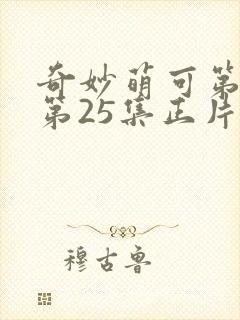 奇妙萌可第
第25集正片
穆古鲁